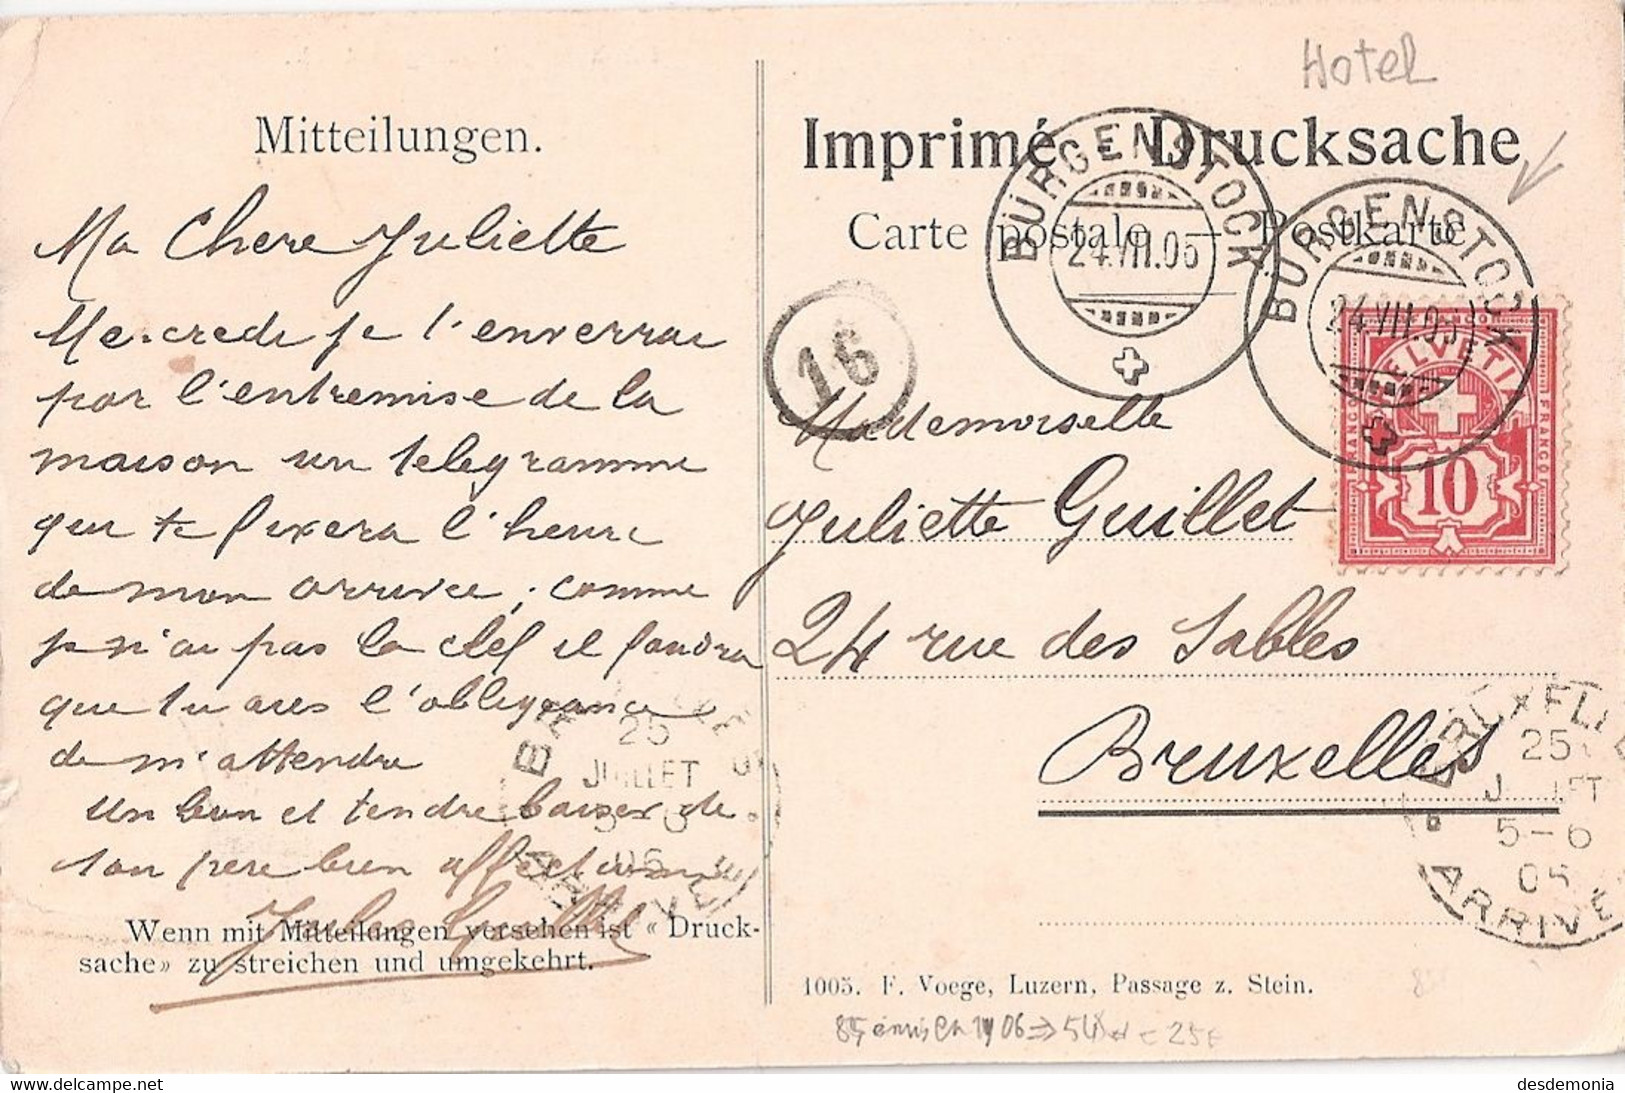 Hotel
Mitteilungen.
Imprimé - Drucksache
Carte postale — Postkarte
BÜRGENSTOCK
24.VII.05
BÜRGENSTOCK
24.VII.05
FRANCO
HELVETIA
FRANCO
FRANCO
10
16
Ma Chere Juliette
Mercredi je t'enverrai
par l'entremise de la
maison un telegramme
qui te fixera l'heure
de mon arrivée, comme
je n'ai pas la clef il faudra
que tu aies l'obligeance
de m'attendre
Un bon et tendre baiser de
ton pere bien affectionné
Mademoiselle
Juliette Guillet
24 rue des Sables
Bruxelles
25
JUILLET
05
BRUXELLES
25
JUILLET
5-6
05
ARRIVÉ
Wenn mit Mitteilungen versehen ist « Druck-
sache» zu streichen und umgekehrt.
1005. F. Voege, Luzern, Passage z. Stein.
desdemonia